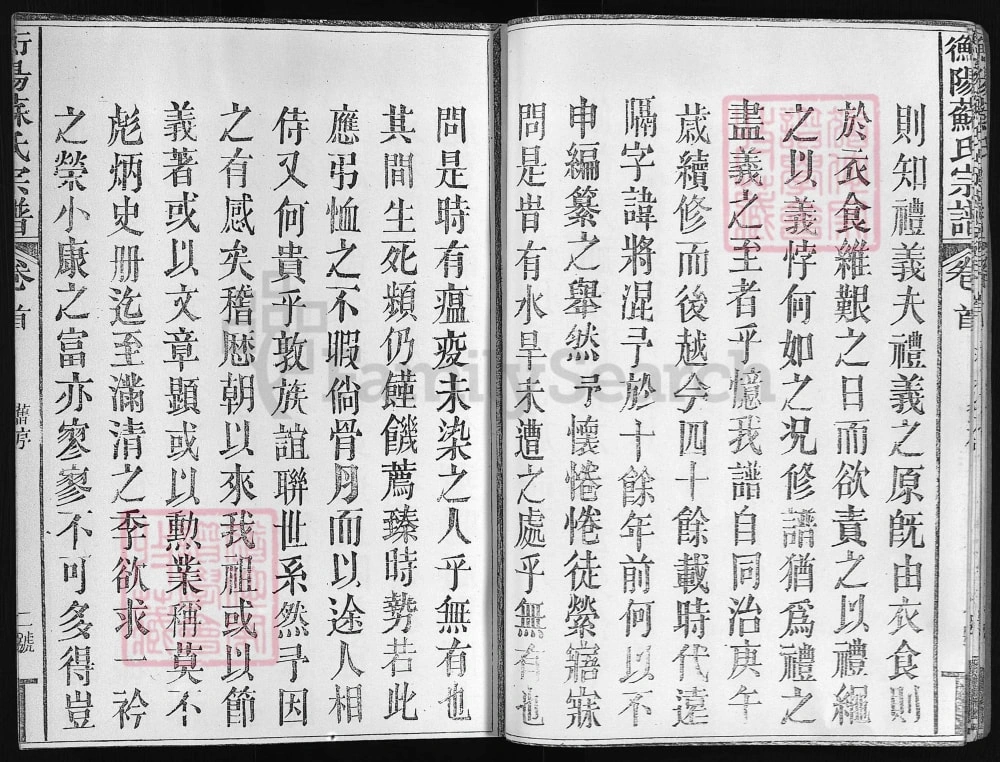 衡陽蘇氏宗譜 卷首
則知禮義夫禮義之原旣由衣食則
於衣食維艱之日而欲責之以禮繩
之以義悖何如之况修譜猶爲禮之
盡義之至者乎憶我譜自同治庚午
歲續修而後越今四十餘載時代遠
隔字諱將混予於十餘年前何以不
申編纂之舉然予懷惓惓徒縈寤寐
問是昔有水旱未遭之處乎無有也
問是時有瘟疫未染之人乎無有也
其間生死頻仍饉饑薦臻時勢若此
應弔恤之不暇倘骨肉而以途人相
待又何貴乎敦族誼聯世系然予因
之有感矣稽歷朝以來我祖或以節
義著或以文章顯或以勲業稱莫不
彪炳史册迄至滿清之季欲求一衿
之榮小康之富亦寥寥不可多得豈
衡陽蘇氏宗譜 卷首 舊序 二 號
FamilySearch